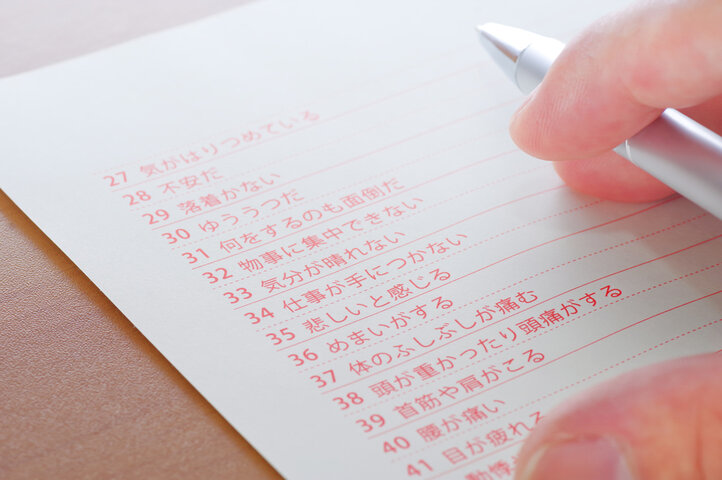 27 気がはりつめている
28 不安だ
29 落着かない
30 ゆううつだ
31 何をするのも面倒だ
32 物事に集中できない
33 気分が晴れない
34 仕事が手につかない
35 悲しいと感じる
36 めまいがする
37 体のふしぶしが痛む
38 頭が重かったり頭痛がする
39 首筋や肩がこる
40 腰が痛い
41 目が疲れる
動悸